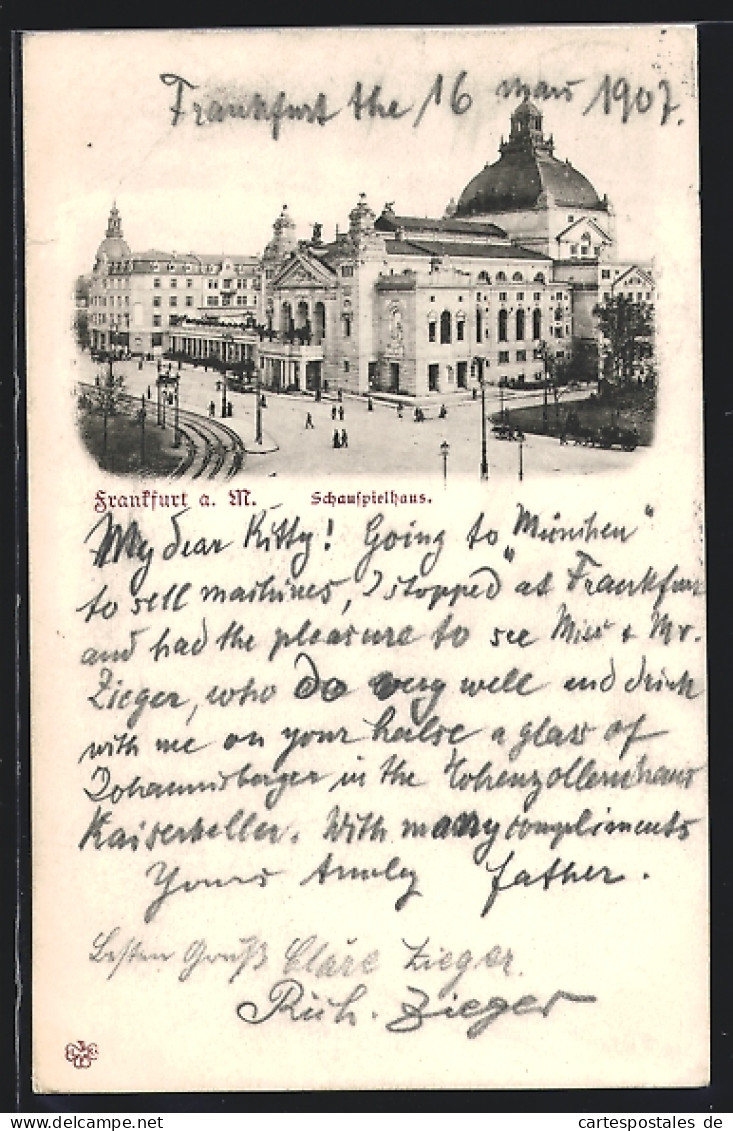 Frankfurt the 16 März 1907.
Frankfurt a. M. Schauspielhaus.
My dear Kitty! Going to "München"
to sell mashines, I stopped at Frankfurt
and had the pleasure to see Miss & Mr.
Zieger, who do very well and drink
with me on your healse a glass of
Johannisberger in the Hohenzollernhaus
Kaiserkeller. With many compliments
Yours truly father.
Besten Gruß Cläre Zieger.
Rich. Zieger
cartespostales de